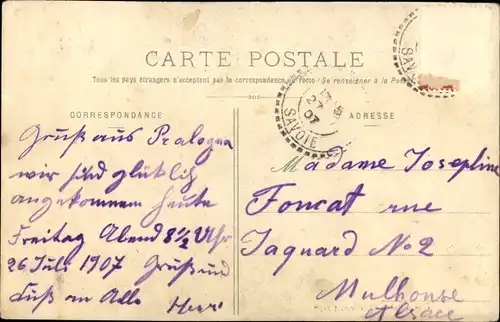 CARTE POSTALE
Tous les pays étrangers n'acceptent pas la correspondance au recto (Se renseigner à la Poste)
CORRESPONDANCE
ADRESSE
SAVOIE
07
SAVOIE
Gruß aus Pralogna
wir sind glüklich
angekommen heute
Freitag Abend 8 1/2 Uhr
26 Juli 1907 Gruß und
Kuß an Alle
Madame Josephine
Foncat rue
Jaquard No 2
Mulhouse
Alsace